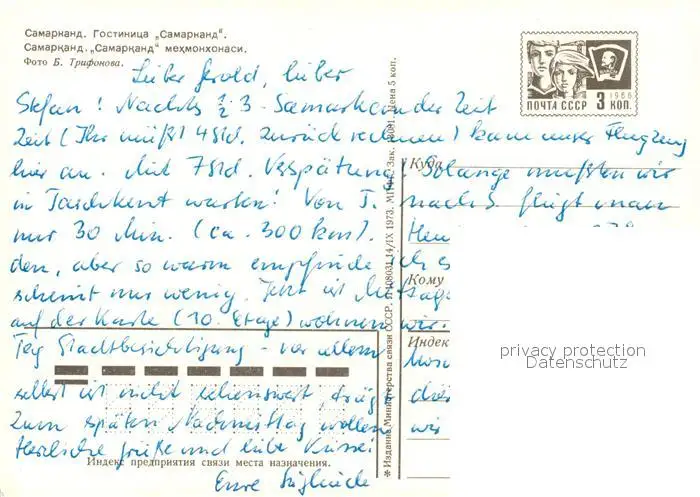 Самарканд. Гостиница „Самарканд".
Самарқанд. „Самарқанд" меҳмонхонаси.
Фото Б. Трифонова.
ПОЧТА СССР 3 КОП. 1966
Lieber Gerold, lieber
Stefan! Nachts ½ 3 Samarkander Zeit
Zeit (Ihr müßt 4 Std. zurück rechnen) kam unser Flugzeug
hier an. Mit 7 Std. Verspätung! Solange mußten wir
in Taschkent warten! Von T. nach S. fliegt man
nur 30 Min. (ca. 300 km).
den, aber so warm empfinde ich es
scheint nur wenig. Jetzt ist Mittags
auf der Karte (10. Etage) wohnen wir.
Tag Stadtbesichtigung - vor allem
selbst ist nicht sehenswert,
Zum späten Nachmittag wollen wir
Herzliche Grüße und liebe Küsse!
Eure
Куда
Кому
Индекс
Индекс предприятия связи места назначения.
✳ Издание Министерства связи СССР. 14/IX 1973. Зак. Цена 5 коп.
privacy protection
Datenschutz